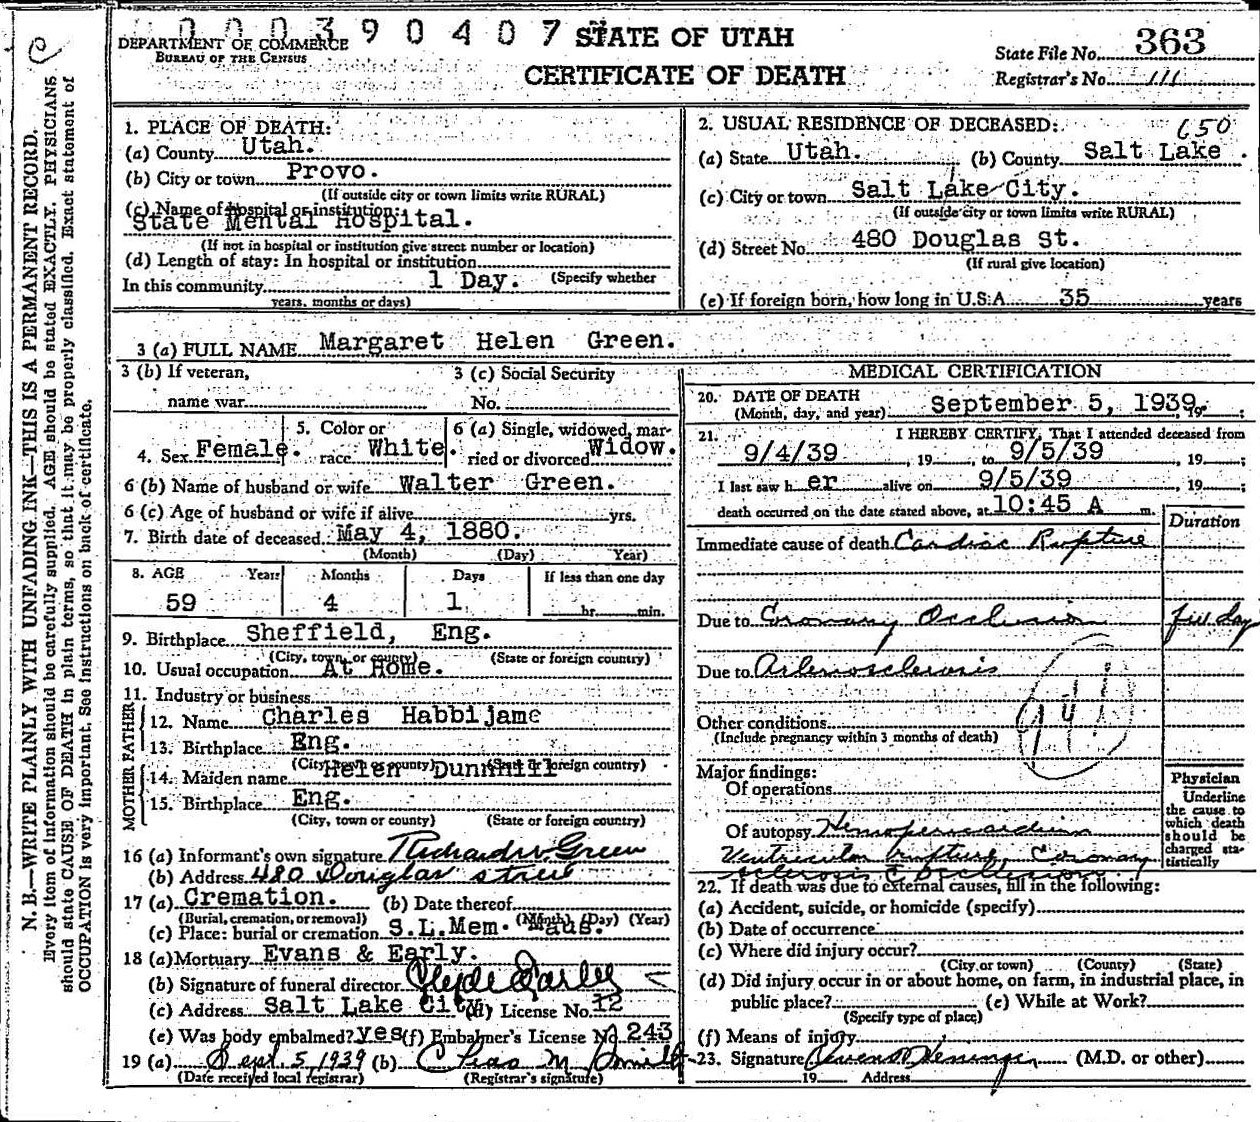 000390407
STATE OF UTAH
CERTIFICATE OF DEATH
DEPARTMENT OF COMMERCE
BUREAU OF THE CENSUS
State File No. 363
Registrar's No. 111
N. B.—WRITE PLAINLY WITH UNFADING INK—THIS IS A PERMANENT RECORD.
Every item of information should be carefully supplied. AGE should be stated EXACTLY. PHYSICIANS
should state CAUSE OF DEATH in plain terms, so that it may be properly classified. Exact statement of
OCCUPATION is very important. See instructions on back of certificate.
1. PLACE OF DEATH:
(a) County Utah.
(b) City or town Provo.
(If outside city or town limits write RURAL)
(c) Name of hospital or institution:
State Mental Hospital.
(If not in hospital or institution give street number or location)
(d) Length of stay: In hospital or institution
In this community 1 Day. (Specify whether
years, months or days)
2. USUAL RESIDENCE OF DECEASED: 650
(a) State Utah. (b) County Salt Lake.
(c) City or town Salt Lake City.
(If outside city or town limits write RURAL)
(d) Street No. 480 Douglas St.
(If rural give location)
(e) If foreign born, how long in U.S.A. 35 years
3 (a) FULL NAME Margaret Helen Green.
3 (b) If veteran,
name war
3 (c) Social Security
No.
4. Sex Female. 5. Color or race White. 6 (a) Single, widowed, married or divorced Widow.
6 (b) Name of husband or wife Walter Green.
6 (c) Age of husband or wife if alive yrs.
7. Birth date of deceased May 4, 1880.
(Month) (Day) Year)
8. AGE Years Months Days If less than one day
59 4 1 hr. min.
9. Birthplace Sheffield, Eng.
(City, town, or county) (State or foreign country)
10. Usual occupation At Home.
11. Industry or business
FATHER
12. Name Charles Habbijame
13. Birthplace Eng.
(City, town or county) (State or foreign country)
MOTHER
14. Maiden name Helen Dunnhill
15. Birthplace Eng.
(City, town or county) (State or foreign country)
16 (a) Informant's own signature Richard W Green
(b) Address 480 Douglas street
17 (a) Cremation. (b) Date thereof
(Burial, cremation, or removal) (Month) (Day) (Year)
(c) Place: burial or cremation S.L.Mem. Maus.
18 (a) Mortuary Evans & Early.
(b) Signature of funeral director Clyde Earley
(c) Address Salt Lake City (d) License No. 12
(e) Was body embalmed? yes (f) Embalmer's License No 243
19 (a) Sept. 5, 1939 (b) Chas M Smith
(Date received local registrar) (Registrar's signature)
MEDICAL CERTIFICATION
20. DATE OF DEATH
(Month, day, and year) September 5, 1939, 19 ;
21. I HEREBY CERTIFY, That I attended deceased from
9/4/39, 19 , to 9/5/39, 19 ;
I last saw h er alive on 9/5/39, 19 ;
death occurred on the date stated above, at 10:45 A m.
Duration
Immediate cause of death Cardiac Rupture
Due to Coronary Occlusion few day
Due to Arteriosclerosis
Other conditions
(Include pregnancy within 3 months of death)
94
Major findings:
Of operations
Of autopsy Hemopericardium
Ventricular rupture, Coronary
sclerosis & occlusion.
Physician
Underline
the cause to
which death
should be
charged sta-
tistically
22. If death was due to external causes, fill in the following:
(a) Accident, suicide, or homicide (specify)
(b) Date of occurrence
(c) Where did injury occur?
(City or town) (County) (State)
(d) Did injury occur in or about home, on farm, in industrial place, in
public place? (e) While at Work?
(Specify type of place)
(f) Means of injury
23. Signature Owen Heninger (M.D. or other)
19 Address